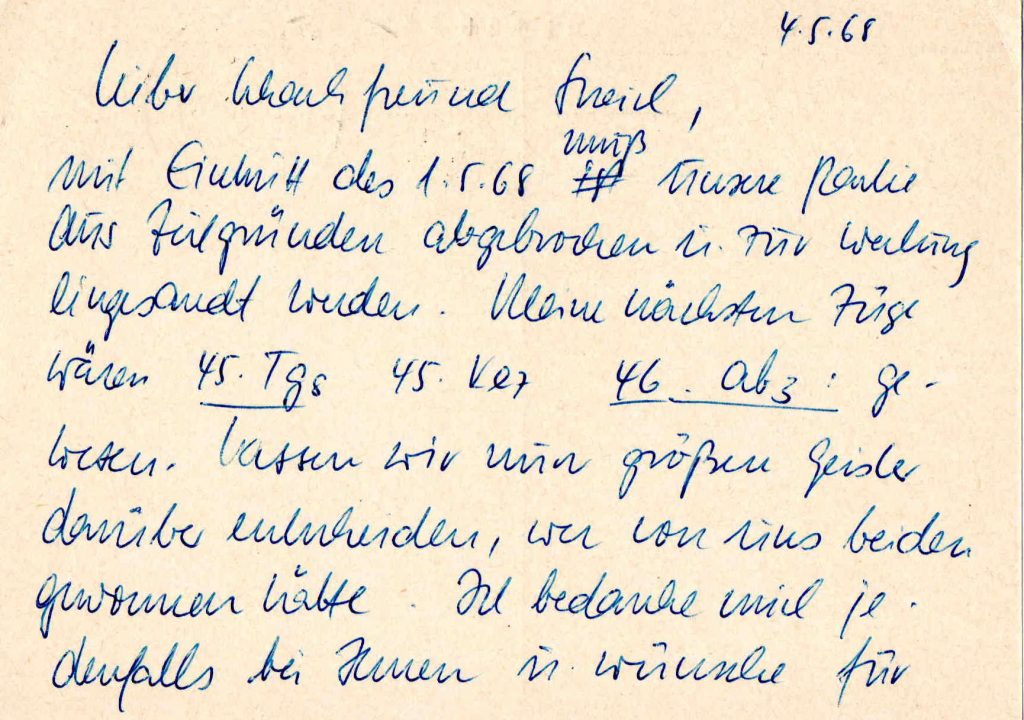 4.5.68
Lieber Schachfreund
muß
mit Eintritt des 1.5.68 unsere Partie
aus Zeitgründen abgebrochen u. zur Wertung
eingesandt werden. Meine nächsten Züge
wären 45. Tg8 45. Ke7 46. ab3: ge-
wesen. Lassen wir nun größen Geister
darüber entscheiden, wer von uns beiden
gewonnen hätte. Ich bedanke mich je-
denfalls bei Ihnen u. wünsche für